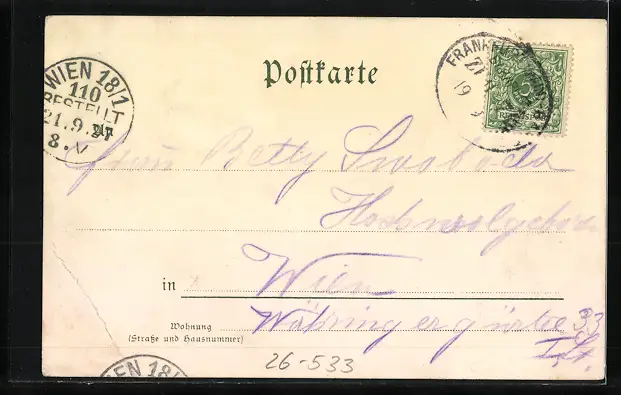 WIEN 18/1
110
BESTELLT
21.9.97
8.V
Postkarte
FRANKFURT
19 9
Frau Betty Swoboda
Hochwohlgeboren
in Wien
Wohnung
(Straße und Hausnummer)
Währingergürtel 33
I. St.
26-533
WIEN 18/1